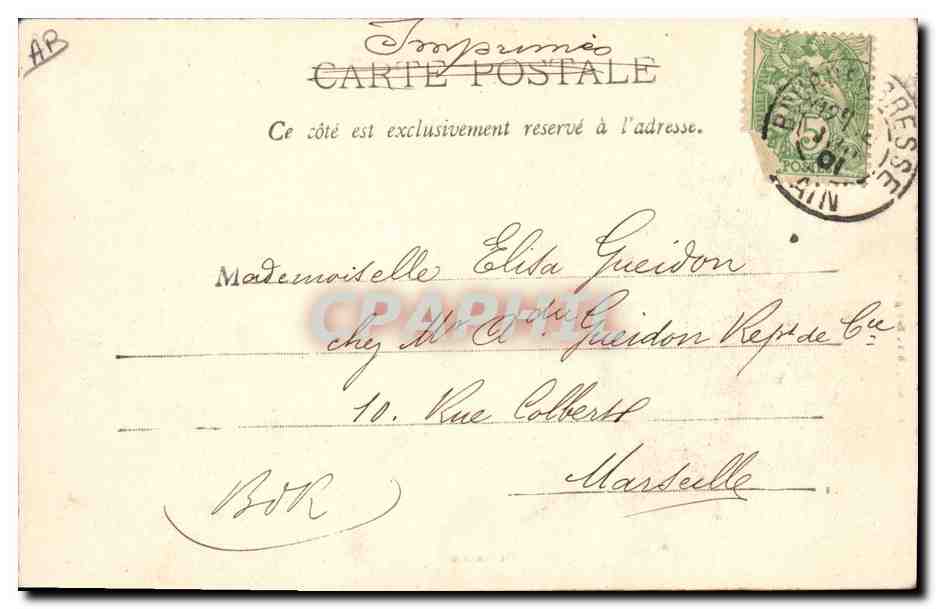 AB
Imprimés
CARTE POSTALE
Ce côté est exclusivement reservé à l'adresse.
5
POSTES
BRESSE
AIN
01
Mademoiselle Elisa Gueidon
CPAPHIL
chez Mr Adu Gueidon Repst de Cie
10. Rue Colbert
Marseille
BdR